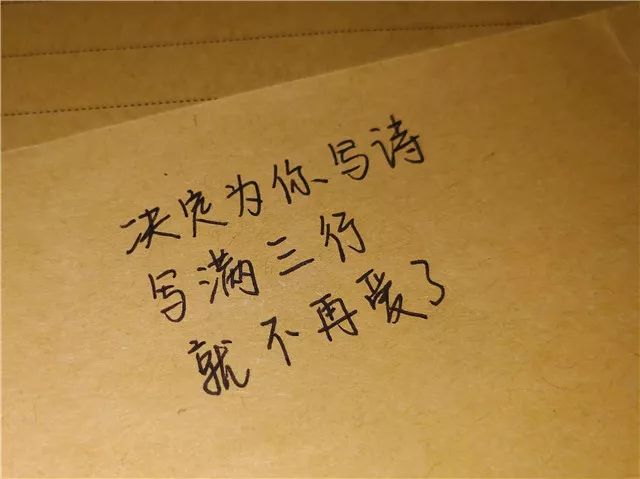 决定为你写诗
写满三行
就不再爱了